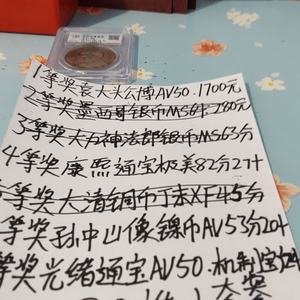 1等奖袁大头公博AV50.1700元
2等奖墨西哥银币MS61.780元
3等奖大方神法郎银币MS63分
4等奖康熙通宝极美82分27十
等奖大清铜币丁未XF45分
等奖孙中山像镍币AV53分20十
等奖光绪通宝AV50.机制宝
大奖